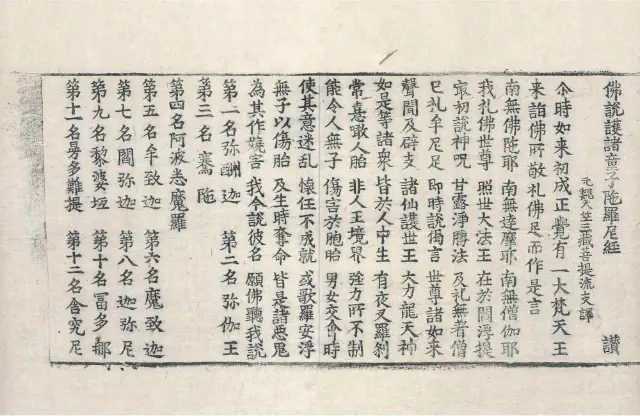 佛說護諸童子陁羅尼經 讃
元魏天竺三藏菩提流支譯
尒時如来初成正覺有一大梵天王
来詣佛所敬礼佛足而作是言
南無佛陁耶 南無達摩耶 南無僧伽耶
我礼佛世尊 照世大法王 在於閻浮提
㝡初說神呪 甘露淨勝法 及礼無著僧
已礼牟尼足 即時說偈言 世尊諸如来
聲聞及辟支 諸仙護世王 大力龍天神
如是等諸衆 皆於人中生 有夜叉羅刹
常喜噉人胎 非人王境界 強力所不制
能令人無子 傷害於胞胎 男女交會時
使其意迷乱 懐任不成就 或歌羅安浮
無子以傷胎 及生時奪命 皆是諸悪鬼
為其作嬈害 我今說彼名 願佛聽我說
第一名弥酬迦 第二名弥伽王
第三名騫陁
第四名阿波悉魔羅
第五名牟致迦 第六名魔致迦
第七名閻弥迦 第八名迦弥尼
第九名黎婆坻 第十名冨多那
第十一名曼多難提 第十二名舎究尼